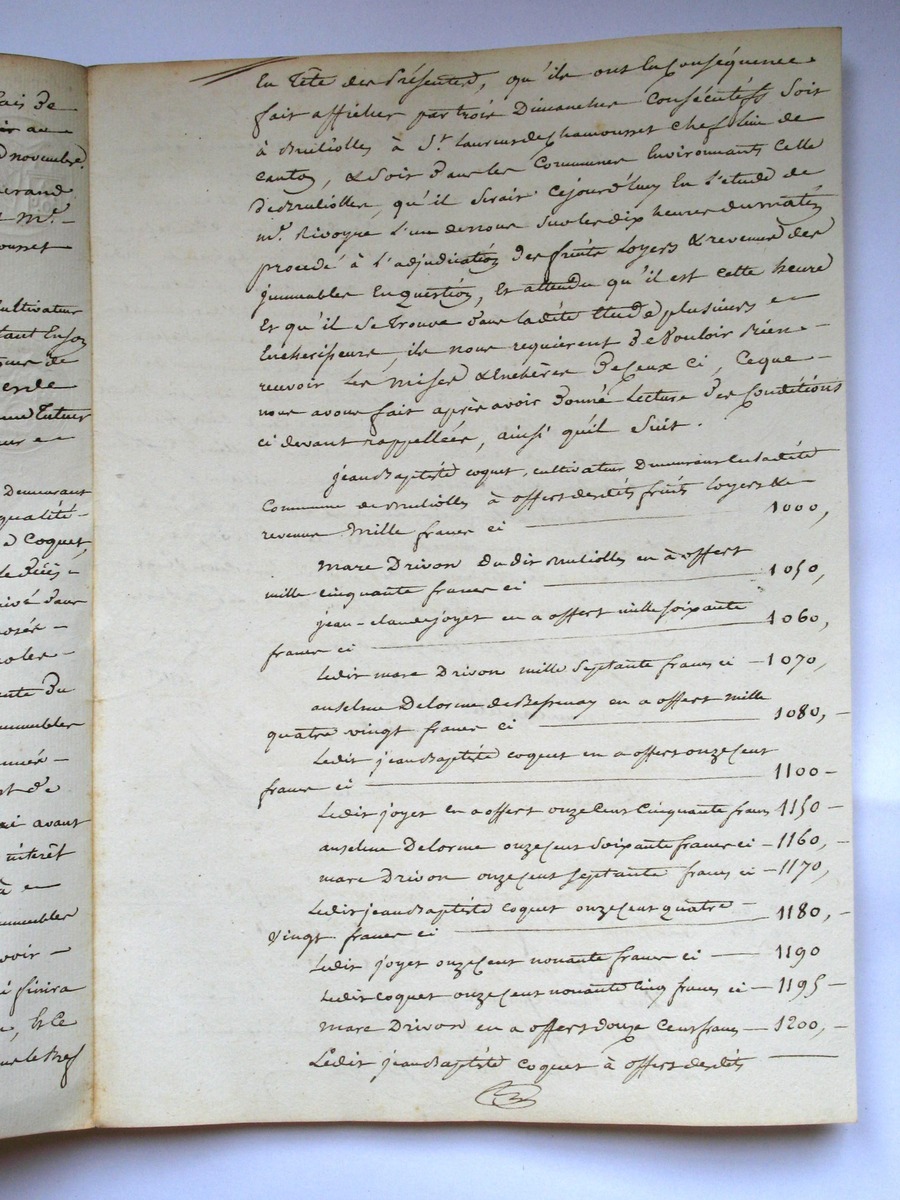 ais de
ir au
novembre
erand
Mr.
ousset
ultivateur
tant En son
me de
une Tuteur
ur
Demeurant
qualité
Coquet
ivé dans
posée
ente du
immeubles
nt de
avant
intérêt
à
immeubles
voir
finira
Et Ce
sur le Bref
En Tête des Présentes, qu'ils ont En Conséquence
fait afficher par trois Dimanches Consécutifs Soit
à Bruliolles à St. Laurent de Chamousset Chef lieu de
canton, & Soit Dans les Communes Environnants Celle
De Brulliolles, qu'il Serait Cejourd'huy En l'Etude de
Mr. Rivoyre L'un de nous Sur les dix heures du matin
procédé à l'adjudication Des fruits Loyers & revenus des
jmmeubles En question, Et attendu qu'il est cette heure
Et qu'il Se Trouve Dans ladite Etude plusieurs
Encherisseurs, ils nous requierent De Vouloir Bien
recevoir Les Mises & Enchères De Ceux ci, Ceque
nous avons fait après avoir Donné Lecture Des Conditions
ci devant rappellées, ainsi qu'il Suit.
jean Baptiste coquet, cultivateur Demeurant En Ladite
Commune de Brulliolles à offert desdits fruits Loyers &
revenus Mille francs ci 1000,
Marc Drivon dudit Brulliolles en à offert
mille cinquante francs ci 1050,
jean-claude joyet en a offert mille soixante
francs ci 1060,
Ledit marc Drivon mille Septante francs ci 1070,
anselme Delorme de Bessenay en a offert mille
quatre vingt francs ci 1080,
Ledit jean Baptiste coquet en a offert onze Cent
francs ci 1100
Ledit joyet en a offert onze Cent Cinquante francs 1150
anselme Delorme onze Cent Soixante francs ci 1160,
marc Drivon onze Cent Septante francs ci 1170,
Ledit jean Baptiste Coquet onze Cent quatre
vingt francs ci 1180,
Ledit joyet onze Cent nonante francs ci 1190
Ledit coquet onze Cent nonante Cinq francs ci 1195
marc Drivon en a offert douze Cent francs 1200,
Ledit jean Baptiste coquet à offert desdits